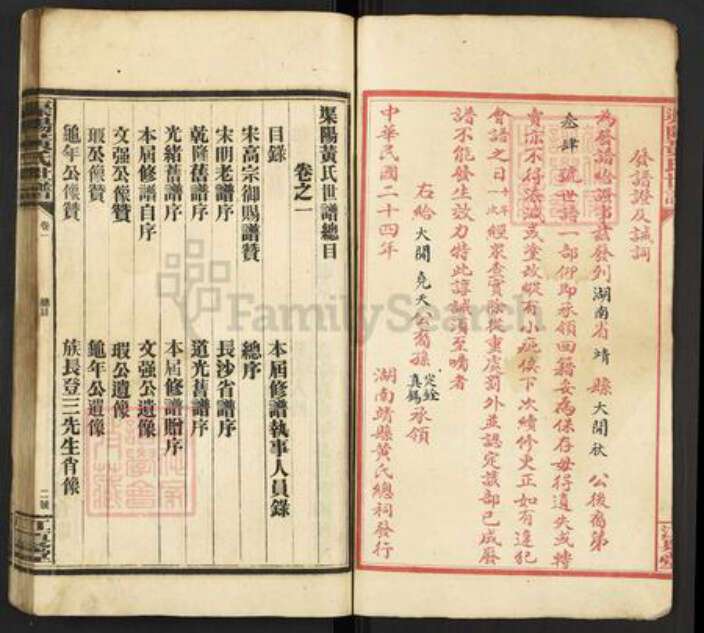 發譜證及誡詞
為發譜給誡事茲發到湖南省靖縣大開狀公後裔第
叁肆號世譜一部仰即承領回籍妥為保存毋得遺失或轉
賣亦不得添減或塗改縱有小疵俟下次續修更正如有違犯
會譜之日十年一次經眾查實除從重處罰外並認定該部已成廢
譜不能發生效力特此諄誡須至嘱者
右給大開堯天公裔孫定銓真錫承領
中華民國二十四年
湖南靖縣黃氏總祠發行
渠陽黃氏世譜總目
卷之一
目錄
本屆修譜執事人員錄
宋高宗御賜譜贊
總序
宋明老譜序
長沙省譜序
乾隆舊譜序
道光舊譜序
光緒舊譜序
本屆修譜贈序
本屆修譜自序
文强公遺像
文强公像贊
瑕公遺像
瑕公像贊
龜年公遺像
龜年公像贊
族長登三先生肖像
渠陽黃氏世譜
卷一
總目
二號
FamilySearch